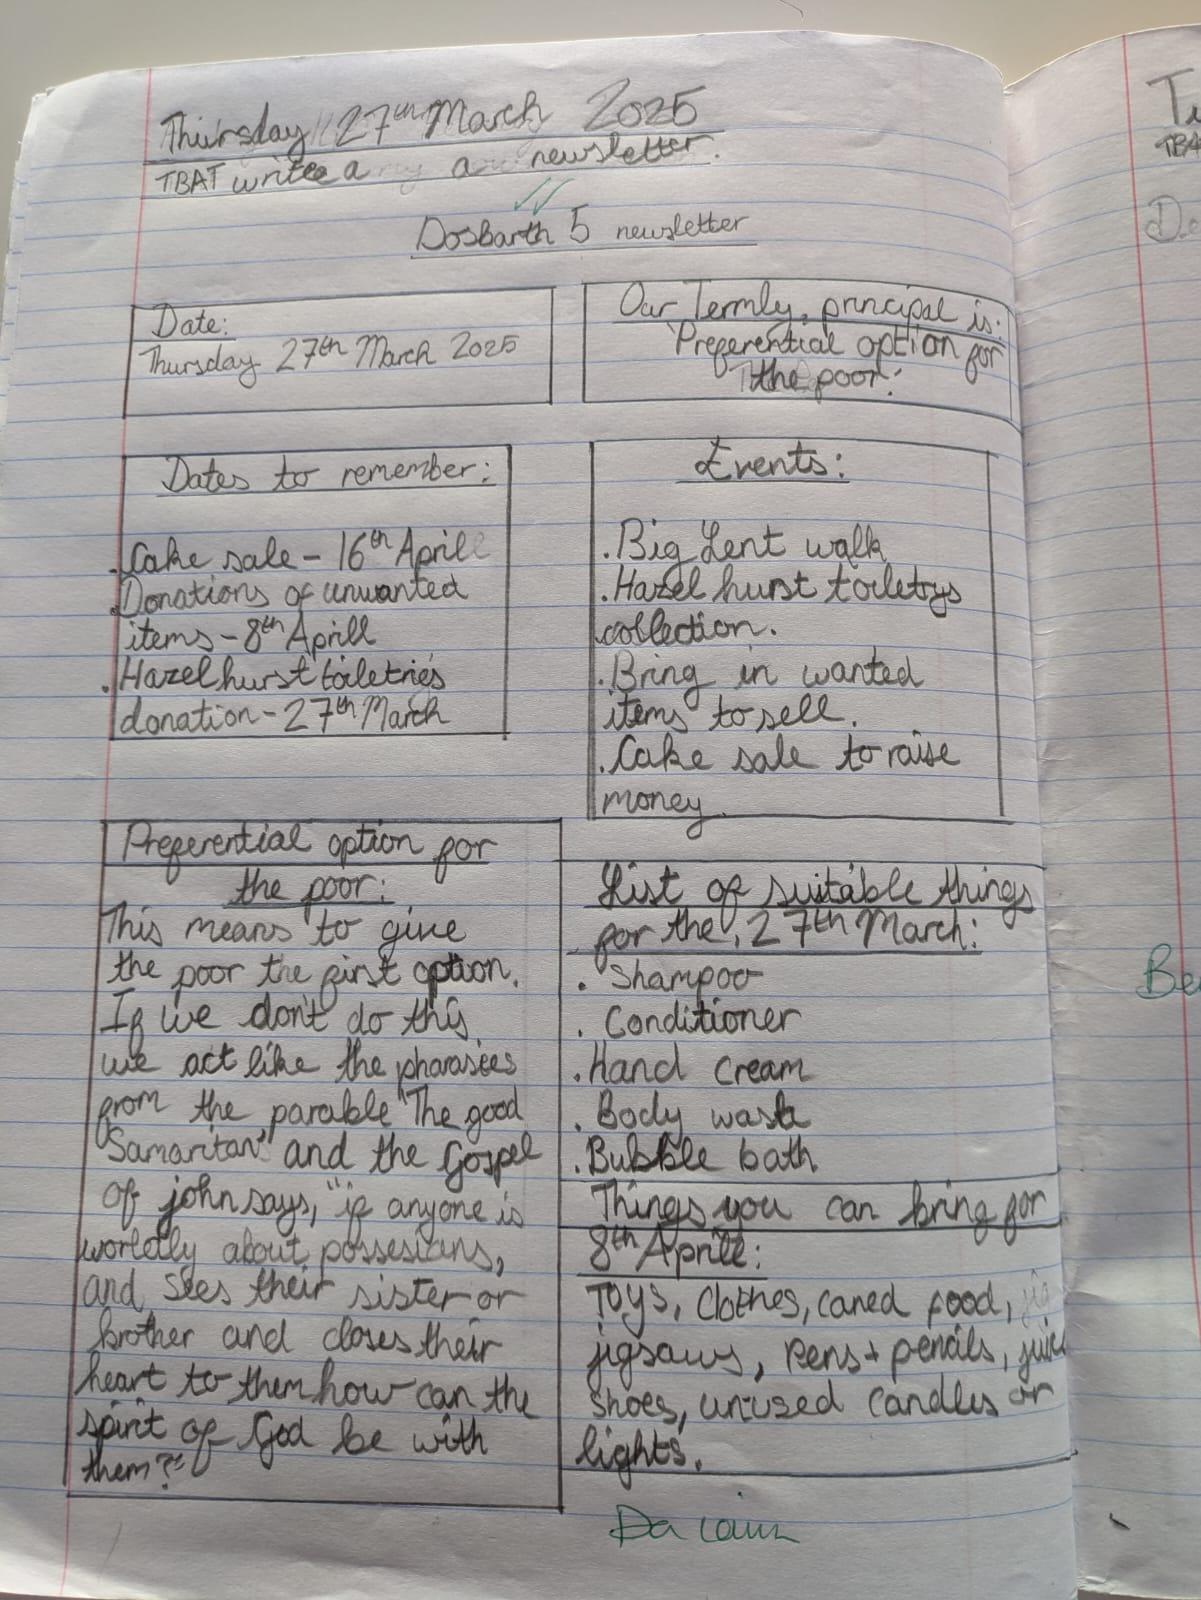 Thursday 27th March 2025
TBAT write a a newsletter.
Dosbarth 5 newsletter
Date:
Thursday 27th March 2025
Our Termly, principal is:
'Preferential option for
the poor.'
Dates to remember:
. Cake sale - 16th Aprill
. Donations of unwanted
items - 8th Aprill
. Hazelhurst toiletries
donation - 27th March
Events:
. Big Lent walk
. Hazelhurst toiletrys
collection.
. Bring in wanted
items to sell.
. Cake sale to raise
money.
Preferential option for
the poor:
This means to give
the poor the first option.
If we don't do this
we act like the pharasees
from the parable "The good
Samaritan" and the Gospel
of john says, "if anyone is
worledly about possesians,
and sees their sister or
brother and closes their
heart to them how can the
spirit of God be with
them?"
List of suitable things
for the, 27th March:
. Shampoo
. Conditioner
. Hand cream
. Body wash
. Bubble bath
Things you can bring for
8th Aprill:
Toys, Clothes, caned food,
jigsaws, Pens + pencils,
shoes, unused candles or
lights.
Da iawn
Be